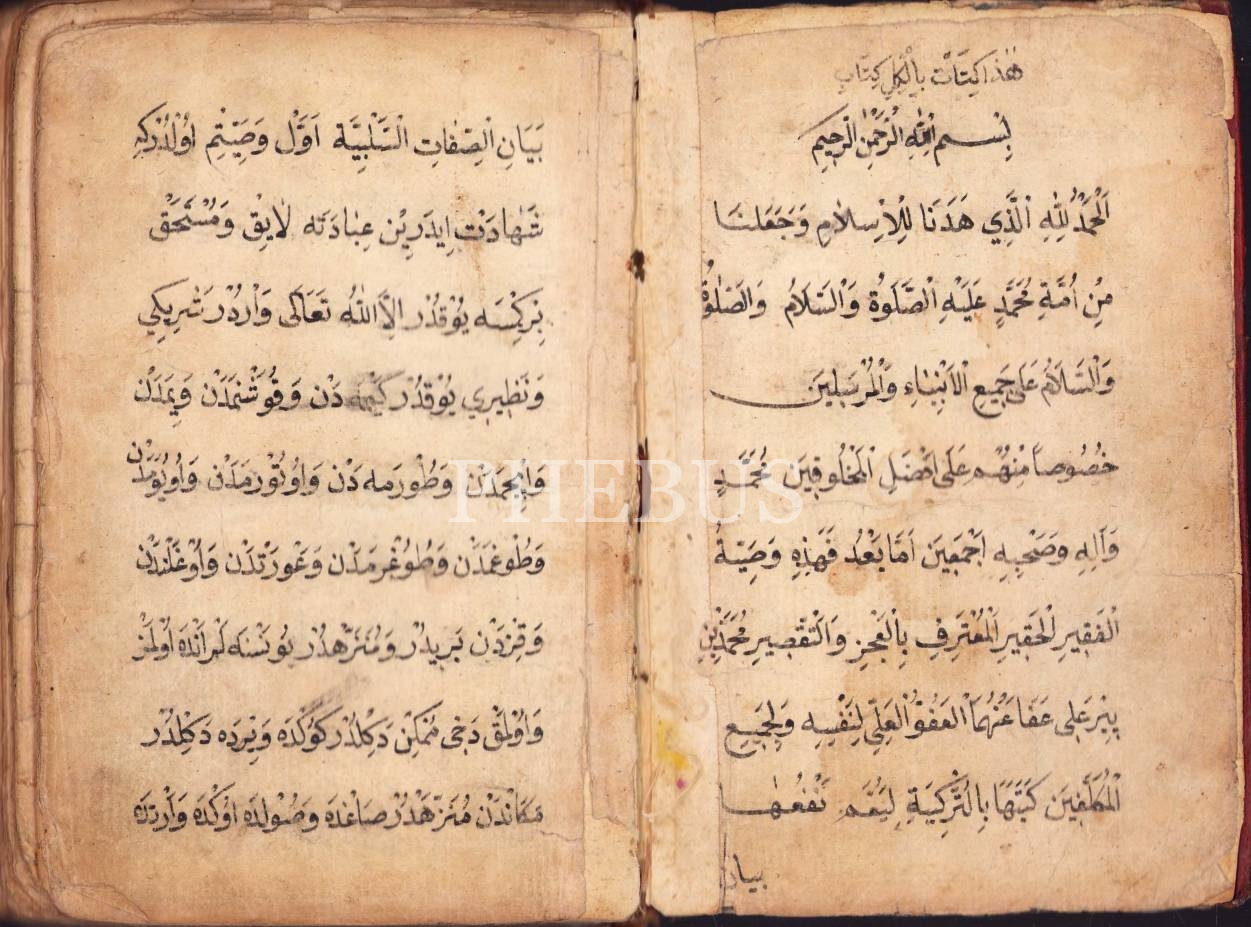 هٰذَا كِتَابْ بِرْكِلِي كِتَابِ
بِسْمِ اللهِ الرَّحْمٰنِ الرَّحِيمِ
اَلْحَمْدُ لِلّٰهِ الَّذِي هَدَنَا لِلْاِسْلَامِ وَجَعَلَنَا
مِنْ اُمَّةِ مُحَمَّدٍ عَلَيْهِ الصَّلَوةُ وَالسَّلَامُ وَالصَّلٰوةُ
وَالسَّلَامُ عَلَى جَمِيعِ الْاَنْبِيَاءِ وَالْمُرْسَلِينَ
خُصُوصاً مِنْهُمْ عَلَى اَفْضَلِ الْمَخْلُوقِينَ مُحَمَّدٍ
وَآلِهِ وَصَحْبِهِ اَجْمَعِينَ اَمَّا بَعْدُ فَهَذِهِ وَصِيَّةُ
الْفَقِيرِ الْحَقِيرِ الْمُعْتَرِفِ بِالْعَجْزِ وَالتَّقْصِيرِ مُحَمَّدِ بْنِ
پِيْرِ عَلِى عَفَا عَنْهُمَا الْعَفُوُّ الْعَلِيِّ لِنَفْسِهِ وَلِجَمِيعِ
الْمُكَلَّفِينَ كَتَبَهَا بِالتُّرْكِيَةِ لِيَعُمَّ نَفْعُهَا
بيان
بَيَانِ الْصِفَاتِ السَّلْبِيَّة اَوَّل وَصِيَّتِم اوُلْدُرْكِه
شَهَادَتْ اِيدَرِيْن عِبَادَتَه لَايِقْ وَمُسْتَحَقْ
بِرْكِسَه يُوْقدُرْ اِلَّا اللهُ تَعَالَى وَارْدُرْ شَرِيكِي
وَنَظِيرِي يُوْقدُرْ كَيْمَه دَنْ وَقُوشَنْمَدَنْ وَيِمَدَنْ
وَاِيچْمَدَنْ وَطُورَمَه دَنْ وَاوُتُورْمَدَنْ وَاُويُوْمَدَنْ
وَطُوغْمَدَنْ وَطُوغُرْمَدَنْ وَعَوْرَتْدَنْ وَاوُغْلَنْدَنْ
وَقِزْدَنْ بَرِيدُرْ وَمُنَزَّهْدُرْ بُونَسْنَه لَرْ اَنْدَه اوُلْمَزْ
وَاوُلْمَقْ دَخِى مُمْكِنْ دَكِلْدُرْ كوُكْدَه وَيِرْدَه دَكِلْدُرْ
مَكَانْدَنْ مُنَزَّهْدُرْ صَاغْدَه وَصُولْدَه اوُكْدَه وَارْدَه
PHEBUS